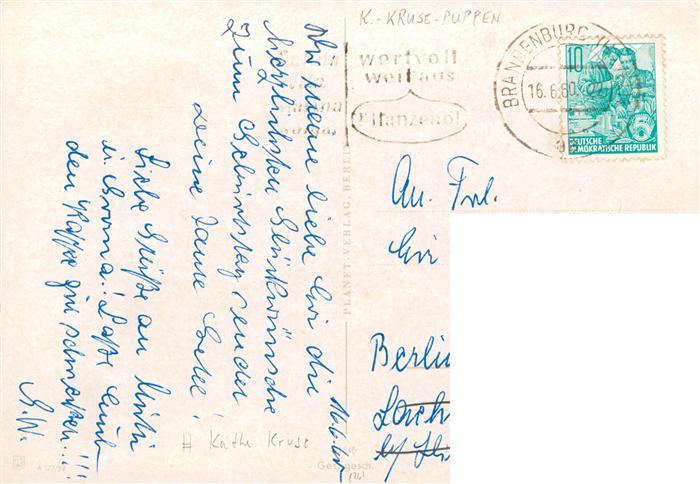 K.-KRUSE-PUPPEN
BRANDENBURG
16.6.60
wertvoll
weil aus
Pflanzenöl
10
5
DEUTSCHE
DEMOKRATISCHE REPUBLIK
16.6.60
meine liebe Evi die
herzlichsten Glückwünsche
zum Geburtstag sendet
Deine Tante
Liebe Grüße an
u. Laßt Euch
den Kaffee gut schmecken!!!
G.W.
PLANET-VERLAG, BERLIN
An Frl.
Evi
Berlin
# Käthe Kruse
Ges. gesch.